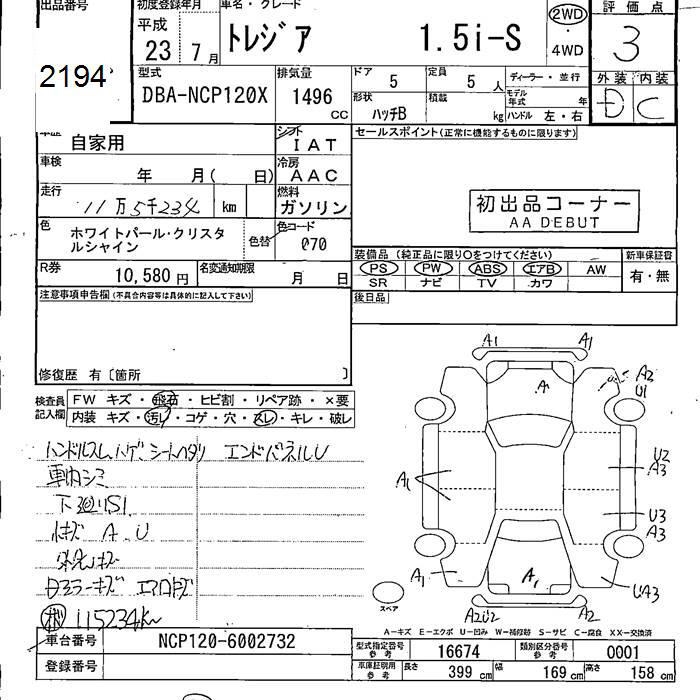 出品番号
2194
初度登録年月
平成
23年7月
車名・グレード
トレジア 1.5i-S
2WD
・
4WD
評価点
3
外装 内装
D C
型式
DBA-NCP120X
排気量
1496 CC
ドア 5
定員 5 人
形状 ハッチB
積載 kg
ディーラー・並行
モデル年式 年
ハンドル 左・右
車歴 自家用
シフト IAT
車検 年 月( 日)
冷房 AAC
走行 11万5千234 km
燃料 ガソリン
色 ホワイトパール・クリスタルシャイン
色替
色コード 070
R券 10,580 円
名変通知期限 月 日
セールスポイント(正常に機能するものに限ります)
初出品コーナー
AA DEBUT
装備品 (純正品に限り○をつけてください)
PS PW ABS エアB AW
SR ナビ TV カワ
新車保証書
有・無
後日品
注意事項申告欄(不具合内容等は具体的に記入して下さい)
修復歴 有〔箇所 〕
検査員記入欄
FW キズ・飛石・ヒビ割・リペア跡・×要
内装 キズ・汚レ・コゲ・穴・スレ・キレ・破レ
ハンドルスレ、ハゲ シートヘタリ エンドパネルU
車内シミ
下廻りS1
小キズ A、U
115234km
車台番号 NCP120-6002732
登録番号
A1 A1
A
A2
U1
A1
U2
A3
U3
A3
A1
A1
UA3
A2U2 A2
スペア
A-キズ E-エクボ U-凹み W-補修跡 S-サビ C-腐食 XX-交換済
型式指定番号 参考 16674
類別区分番号 参考 0001
車庫証明用 参考
長さ 399 cm
幅 169 cm
高さ 158 cm